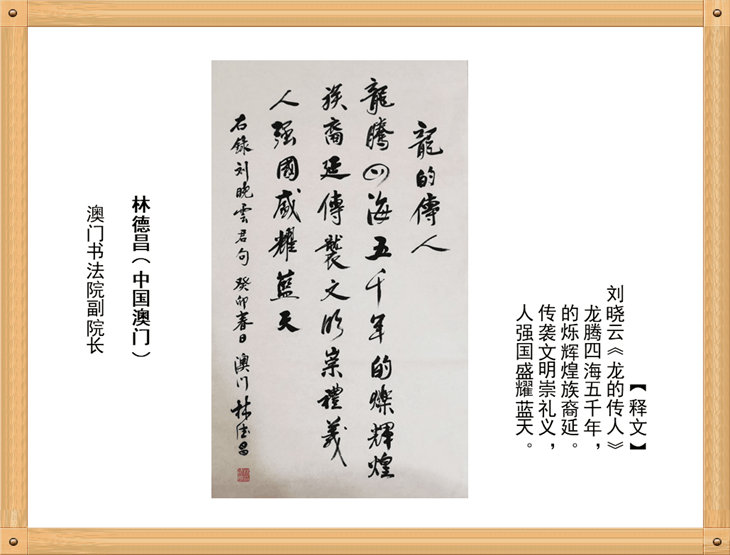 【释文】
刘晓云《龙的传人》
龙腾四海五千年，
的烁辉煌族裔延。
传袭文明崇礼义，
人强国盛耀蓝天。
龍的傳人
龍騰四海五千年的爍輝煌
族裔延傳襲文明崇禮義
人强國盛耀藍天
右錄刘曉雲君句 癸卯春日 澳门林德昌
林德昌（中国澳门）
澳门书法院副院长